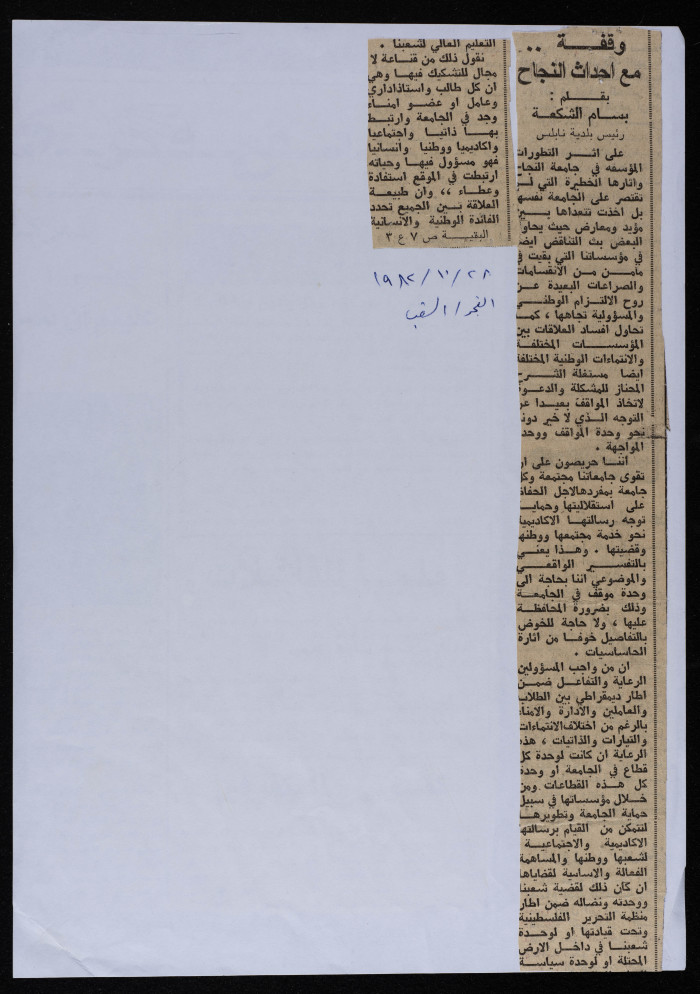 وقفــــة ..
مع احداث النجاح
بقــلـم :
بسام الشكعة
رئيس بلدية نابلس
على اثــر التطورات
المؤسفه في جامعة النجاح
واثارها الخطيرة التي لم
تقتصر على الجامعة نفسها
بل اخذت تتعداها بيــن
مؤيد ومعارض حيث يحاول
البعض بث التناقض ايضا
في مؤسساتنا التي بقيت في
مامــن من الانقسامات
والصراعات البعيدة عــن
روح الالتــزام الوطنــي
والمسؤولية تجاهها ، كمــا
تحاول افساد العلاقات بين
المؤسســات المختلفــة
والانتماءات الوطنية المختلفة
ايضا مستغلة الشــرخ
المجتاز للمشكلة والدعــوة
لاتخاذ المواقف بعيــدا عن
التوجه الــذي لا خير دونه
نحو وحدة المواقف ووحدة
المواجهة .
اننــا حريصون على ان
تقوى جامعاتنا مجتمعة وكل
جامعة بمفردهالاجل الحفاظ
على استقلاليتها وحماية
توجه رسالتهــا الاكاديمية
نحو خدمة مجتمعها ووطنها
وقضيتها . وهــذا يعنــي
بالتفسيــر الواقعــي
والموضوعي اننا بحاجة الى
وحدة موقف في الجامعــة
وذلك بضرورة المحافظــة
عليها ، ولا حاجة للخوض
بالتفاصيل خوفــا من اثارة
الحاساسيات .
ان من واجب المسؤولين
الرعاية والتفاعــل ضمــن
اطار ديمقراطي بين الطلاب
والعاملين والادارة والامناء
بالرغم من اختلاف الانتماءات
والتيارات والذاتيات ، هذه
الرعاية ان كانت لوحدة كل
قطاع في الجامعة او وحدة
كل هــذه القطاعات ومن
خــلال مؤسساتها في سبيل
حماية الجامعة وتطويرهــا
لتتمكن من القيام برسالتها
الاكاديمية والاجتماعيــة
لشعبها ووطنها والمساهمة
الفعالة والاساسية لقضاياها
ان كان ذلك لقضية شعبنا
ووحدته ونضاله ضمن اطار
منظمة التحرير الفلسطينية
وتحت قيادتها او لوحــدة
شعبنــا في داخل الارض
المحتلة او لوحدة سياسة
التعليم العالي لشعبنا .
نقول ذلك من قنــاعة لا
مجال للتشكيك فيهــا وهي
ان كل طالب واستاذ اداري
وعامل او عضــو امنــاء
وجد في الجامعة وارتبــط
بهــا ذاتيــا واجتماعيا
واكاديميا ووطنيا وانسانيا
فهو مسؤول فيهــا وحياته
ارتبطت في الموقع استفادة
وعطــاء ،، وان طبيعــة
العلاقة بيــن الجميع تحدد
الفائدة الوطنية والانسانية
البقيــة ص ٧ ع ٣
١٩٨٢/١٠/٢٨
الفجر / الشعب